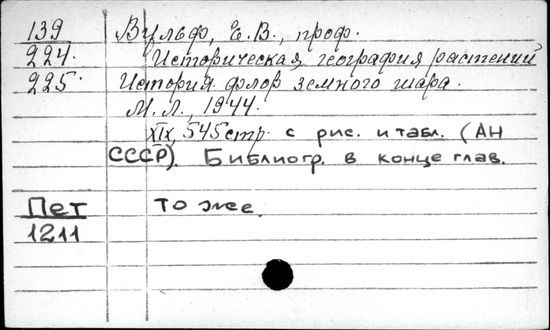 139 Вульф, Е.В., проф.
224. Историческая география растений
225. История флор земного шара.
М. Л., 1944.
XIX, 545 стр. с рис. и табл. (АН
СССР). Библиогр. в конце глав.
Пет то же.
1211